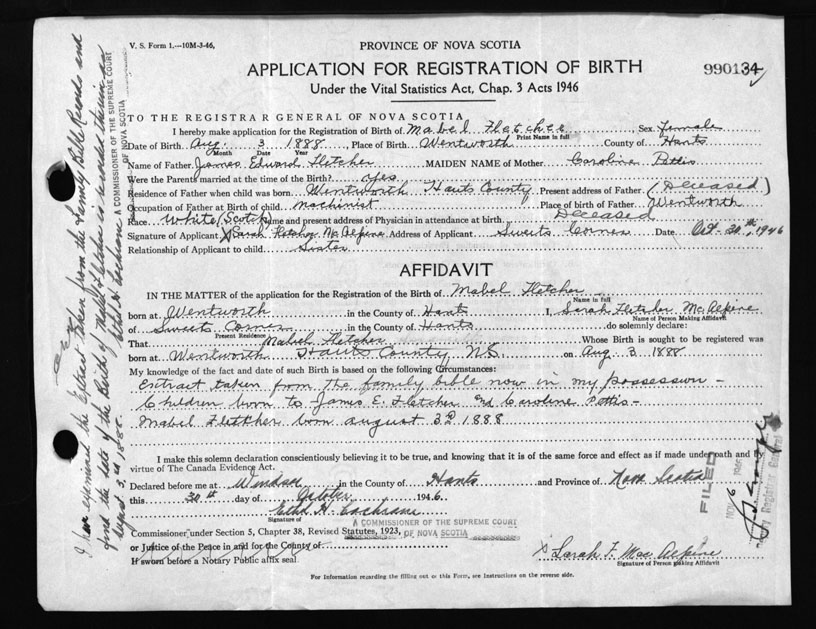 V. S. Form 1.—10M-3-46,
PROVINCE OF NOVA SCOTIA
APPLICATION FOR REGISTRATION OF BIRTH
990134
Under the Vital Statistics Act, Chap. 3 Acts 1946
TO THE REGISTRAR GENERAL OF NOVA SCOTIA
I hereby make application for the Registration of Birth of Mabel Fletcher Sex Female
Print Name in full
Date of Birth Aug. 3 1888, Place of Birth Wentworth County of Hants
Month Date Year
Name of Father James Edward Fletcher MAIDEN NAME of Mother Caroline Pettis
Were the Parents married at the time of Birth? yes
Residence of Father when child was born Wentworth Hants County Present address of Father (Deceased)
Occupation of Father at Birth of child machinist Place of birth of Father Wentworth
Race White (Scotch) Name and present address of Physician in attendance at birth Deceased
Signature of Applicant X Sarah Fletcher McAlpine Address of Applicant Sweets Corner Date Oct. 30th, 1946
Relationship of Applicant to child Sister
AFFIDAVIT
IN THE MATTER of the application for the Registration of the Birth of Mabel Fletcher
Name in full
born at Wentworth in the County of Hants I, Sarah Fletcher McAlpine
Name of Person Making Affidavit
of Sweets Corner in the County of Hants do solemnly declare:
Present Residence
That Mabel Fletcher Whose Birth is sought to be registered was
born at Wentworth Hants County N.S. on Aug 3 1888
My knowledge of the fact and date of such Birth is based on the following Circumstances:
Extract taken from the family bible now in my possession -
Children born to James E. Fletcher and Caroline Pettis -
Mabel Fletcher born august 3rd 1888
I make this solemn declaration conscientiously believing it to be true, and knowing that it is of the same force and effect as if made under oath and by
virtue of The Canada Evidence Act.
Declared before me at Windsor in the County of Hants and Province of Nova Scotia
this 30th day of October 1946.
Ethel H. Cochrane
Signature of
A COMMISSIONER OF THE SUPREME COURT
Commissioner under Section 5, Chapter 38, Revised Statutes, 1923, OF NOVA SCOTIA
or Justice of the Peace in and for the County of
If sworn before a Notary Public affix seal
X Sarah F. MacAlpine
Signature of Person Making Affidavit
For Information regarding the filling out of this Form, see Instructions on the reverse side.
I have examined the Extract taken from the Family Bible Records and
find the date of the Birth of Mabel Fletcher is recorded therein as
August 3rd 1888.
Ethel H. Cochrane
A COMMISSIONER OF THE SUPREME COURT
OF NOVA SCOTIA
FILED